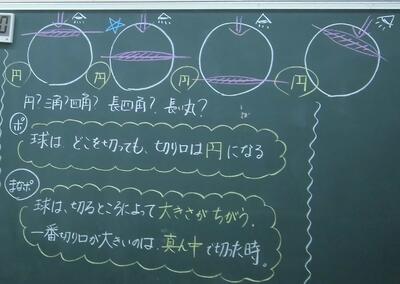 円 円 円 円
円？三角？四角？ 長四角？ 長い丸？
ポ
球は どこを切っても、切り口は 円 になる
まなポ
球は、切るところによって 大きさが ちがう。
一番切り口が大きいのは、真ん中で切った時。